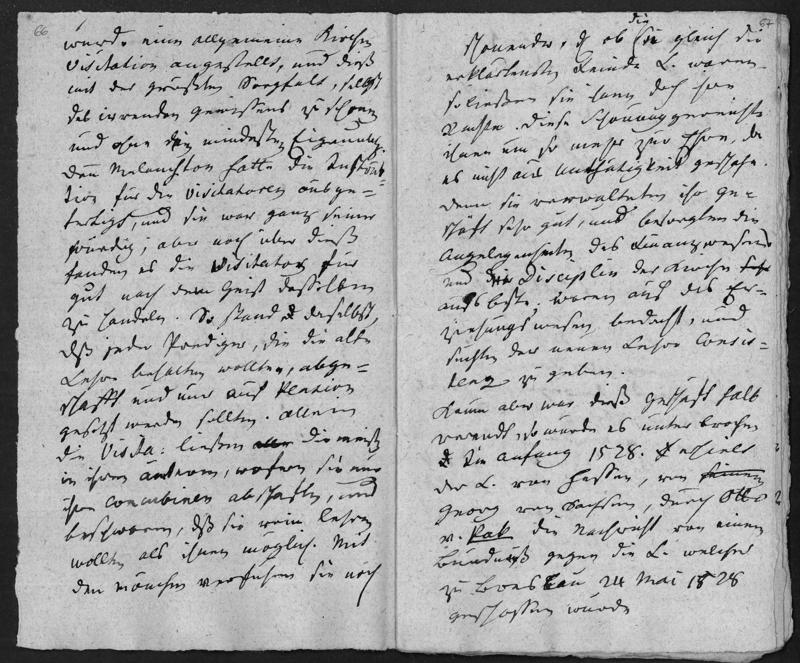 66
wurde eine allgemeine Kirchen
Visitation angestellt, und dieß
mit der größten Sorgfalt, selbst
des irrenden Gewissens zu schonen
und ohne den mindesten Eigennutz.
Den Melanchton hatte die Instruk-
tion für die Visitatoren ausge-
fertigt, und sie war ganz seiner
würdig; aber noch über dieß
fanden es die Visitator für
gut nach dem Geist desselben
zu handeln. So stand daselbst,
dß jeder Prediger, die die alte
Lehre behalten wollten, abge-
schafft und nur auf Pension
gesetzt werden sollten. Allein
die Visita: ließen die meist
in ihren Ämtern, wofern sie nur
ihre Concubinen abschafften, und
beschworen, dß sie rein lehren
wollten als ihnen möglich. Mit
den Mönchen verfuhren sie noch
67
schonender, ob die gleich die
erklärtesten Feinde L. waren
so ließen sie ihnen doch ihre
Rechte. Diese Schonung gereichte
ihnen um so mehr zur Ehre, da
es nicht aus Unthätigkeit geschah.
denn sie verwalteten ihr Ge-
schäft sehr gut, und besorgten die
Angelegenheiten des Finanzwesens
und die Disciplin der Kirche
aufs beste, waren auf das Er-
ziehungswesen bedacht, und
suchten der neuen Lehre Consis-
tenz zu geben.
Kaum aber war dieß Geschäft halb
vollendt, so wurde es unterbrochen
Im Anfang 1528. erhielt
der L. von Hessen, von seinem
Georg von Sachsen, durch Otto
v. Pak die Nachricht von einem
Bündniß gegen die L. welches
zu Breslau 24 Mai 1528
geschlossen wurde